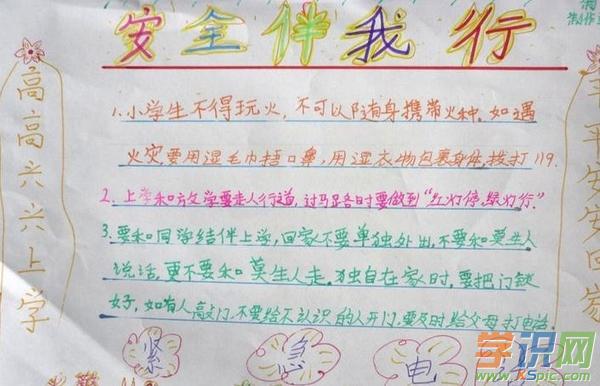 安全伴我行
高高兴兴上学
1.小学生不得玩火,不可以随身携带火种,如遇
火灾要用湿毛巾捂口鼻,用湿衣物包裹身体,拨打119.
2.上学和放学要走人行道,过马路时要做到“红灯停,绿灯行.”
3.要和同学结伴上学,回家不要单独外出,不要和莫生人
说话,更不要和莫生人走.独自在家时,要把门锁
好,如有人敲门,不要给不认识的人开门,要及时给父母打电话.
平平安安回家
紧 急 电
学识网
www.xSpic.com